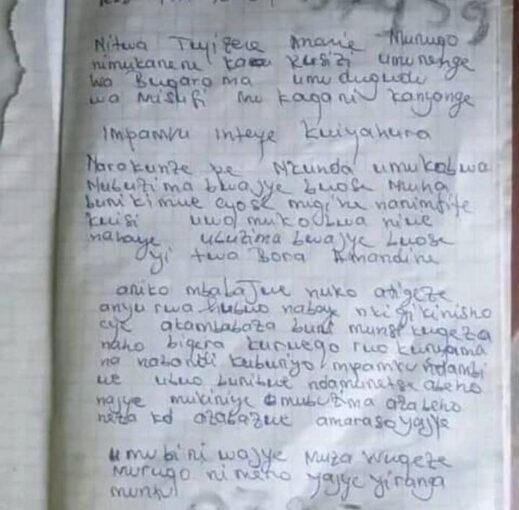 Nitwa Tuyizere Ananie Murugo
nimukarere ka Rusizi umurenge
wa Bugarama umudugudu
wa Misufi mu kagari kanyonge
Impamvu inteye kwiyahura
Narakunze pe Nkunda umukobwa
Mubuzima bwajye bwose Muha
buri kimwe cyose mugihe narimfite
kwisi uwo mukobwa niwe
nahaye ubuzima bwajye bwose
yitwa Bora Amandine
ariko mbabajwe nuko atigeze
anyurwa nabyo nkigikinisho
cye akambabaza buri munsi kugeza
naho bigera kurwego rwo kuryama
na nabandi kuburiyo impamvu ndambi
we ubwo buribwe ndamunetse abeho
najye mukiniye mubuzima azabeho
neza kd azabazwe amaraso yajye
umubiri wajye Muza wugeze
murugo ni mero yajye yiranga
muntu